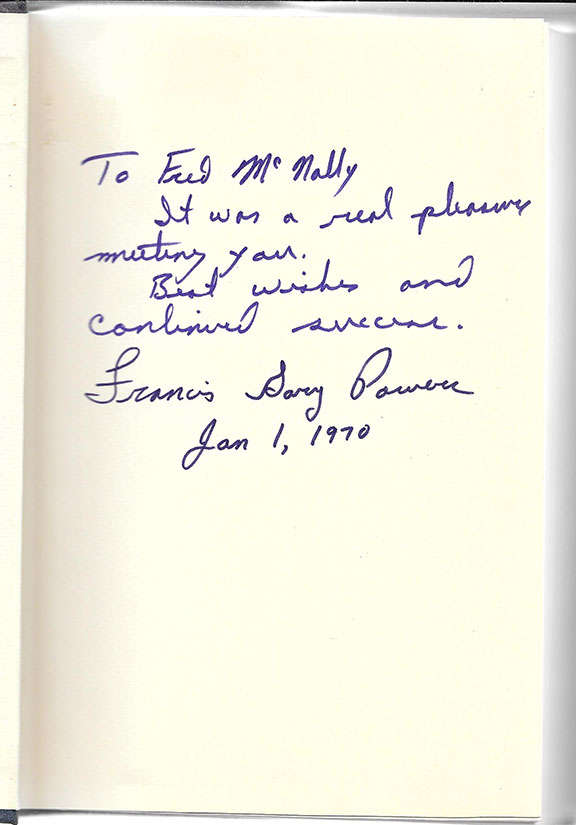 To Fred McNally
It was a real pleasure
meeting you.
Best wishes and
continued success.
Francis Gary Powers
Jan 1, 1970